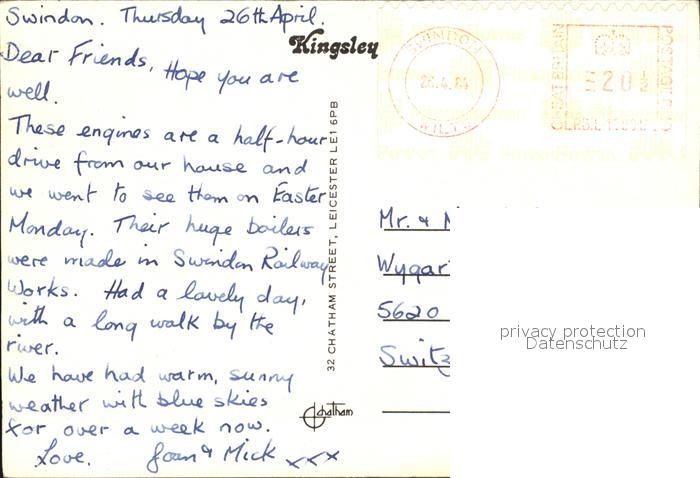 Swindon. Thursday 26th April.
Dear Friends, Hope you are
well.
These engines are a half-hour
drive from our house and
we went to see them on Easter
Monday. Their huge boilers
were made in Swindon Railway
Works. Had a lovely day,
with a long walk by the
river.
We have had warm, sunny
weather with blue skies
for over a week now.
Love. Joan & Mick xxx
Kingsley
32 CHATHAM STREET, LEICESTER LE1 6PB
Chatham
SWINDON
26.4.84
WILTS
GREAT BRITAIN
POSTAGE PAID
Mr. &
5620
privacy protection
Datenschutz